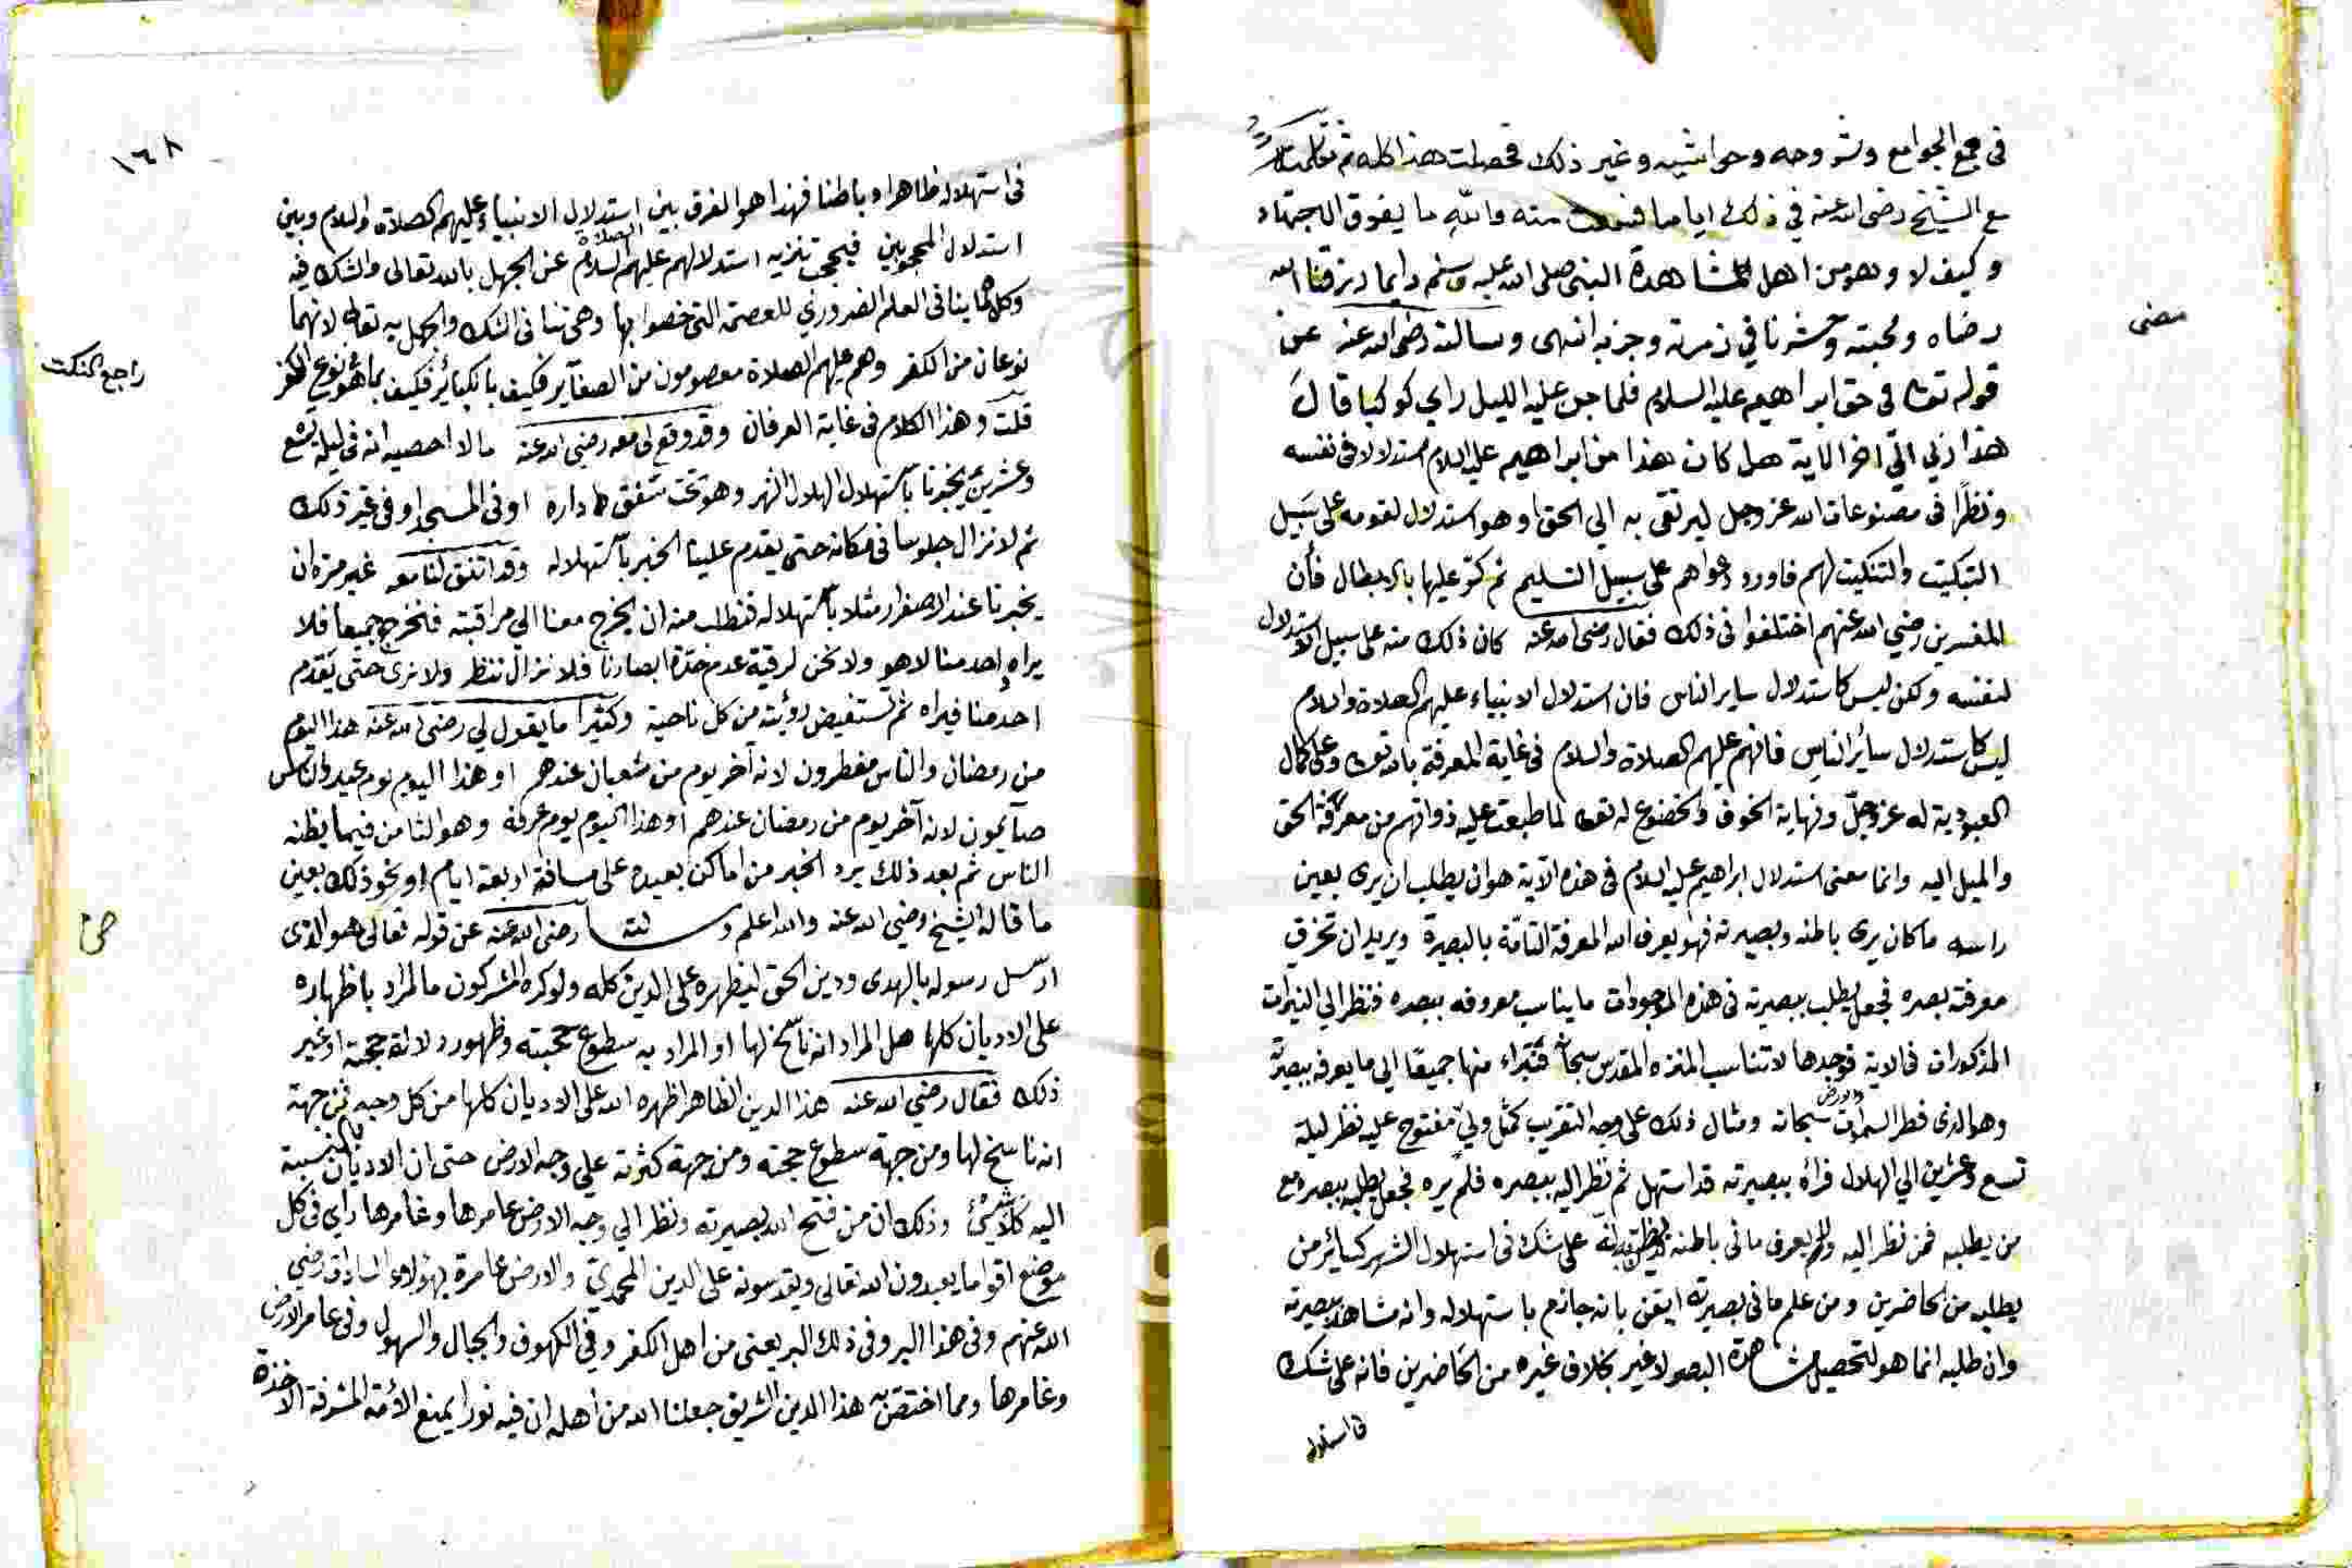 في جمع الجوامع وشروحه وحواشيه وغير ذلك فحصلت هذا كله ثم تكلمت
مع الشيخ رضى الله عنه في ذلك اياما فسمعت منه والله ما يفوق الاجتهاد
وكيف لا وهو من اهل المشاهدة النبى صلى الله عليه وسلم دايما رزقنا الله
رضاه ومحبته وحشرنا في زمرته وحزبه انتهى وسالته رضى الله عنه عن
مضى
قوله تعا في حق ابراهيم عليه السلام فلما جن عليه الليل راي كوكبا قال
هذا ربي الى اخر الاية هل كان هذا من ابراهيم عليه السلام استدلالا فى نفسه
ونظرا فى مصنوعات الله عز وجل ليرتقى به الي الحق او هو استدلال لقومه على سبيل
التبكيت والتنكيت لهم فاورد دعواهم على سبيل التسليم ثم كر عليها بالابطال فان
المفسرين رضي الله عنهم اختلفوا فى ذلك فقال رضى الله عنه كان ذلك منه على سبيل الاستدلال
لنفسه ولكن ليس كاستدلال ساير الناس فان استدلال الانبياء عليهم الصلاة والسلام
ليس كاستدلال سائر الناس فانهم عليهم الصلاة والسلام فى غاية المعرفة بالله تعا وعلى كمال
العبودية له عز وجل ونهاية الخوف والخضوع له تعا لما طبعت عليه ذواتهم من معرفة الحق
والميل اليه وانما معنى استدلال ابراهيم عليه السلام فى هذه الآية هو ان يطلب ان يرى بعين
راسه ما كان يرى باطنه وبصيرته فهو يعرف الله المعرفة التامة بالبصيرة ويريد ان تخرق
معرفته بصره فجعل يطلب ببصيرته فى هذه الموجودات ما يناسب معروفه ببصره فنظر الي النيرات
المذكورات فى الاية فوجدها لا تناسب المنزه المقدس سبحانه فتبراء منها جميعا الي ما يعرفه ببصيرته
وهو الذى فطر السموات والارض سبحانه ومثال ذلك على وجه التقريب كمثل ولي مفتوح عليه نظر ليلة
تسع وعشرين الي الهلال فرآه ببصيرته قد استهل ثم نظر اليه ببصره فلم يره فجعل يطلبه ببصره مع
من يطلبه فمن نظر اليه ولم يعرف ما فى باطنه على شك فى استهلال الشهر كسائر من
يطلبه من الحاضرين ومن علم ما فى بصيرته ايقن بانه جازم باستهلاله وانه شاهده ببصيرته
وان طلبه انما هو لتحصيل مشاهدة البصر لا غير بخلاف غيره من الحاضرين فانه على شك
١٦٨
فى استهلاله ظاهرا وباطنا فهذا هو الفرق بين استدلال الانبياء عليهم الصلاة والسلام وبين
استدلال المحجوبين فيجب تنزيه استدلالهم عليهم الصلاة السلام عن الجهل بالله تعالى والشك فيه
وكل ما ينافى العلم الضروري للعصمة التى خصوا بها وهى تنافى الشك والجهل به تعالى لانهما
نوعان من الكفر وهم عليهم الصلاة معصومون من الصغآير فكيف بالكبائر فكيف بما هو نوع الكفر
راجع النكت
قلت وهذا الكلام فى غاية العرفان وقد وقع لى معه رضى الله عنه ما لا احصيه انه فى ليلة تسع
وعشرين يخبرنا باستهلال الهلال الشهر وهو تحت سقف داره او فى المسجد او فى غير ذلك
ثم لا نزال جلوسا فى مكانه حتى يقدم علينا الخبر باستهلاله وقد اتفق لنا معه غير مرة ان
يخبرنا عند الاصفرار مثلا باستهلاله فنطلب منه ان يخرج معنا الي مراقبته فنخرج جميعا فلا
يراه احد منا لا هو ولا نحن لرقته عدم حدة ابصارنا فلا نزال ننظر ولا نرى حتى يقدم
احد منا فيراه ثم تستفيض رؤيته من كل ناحية وكثيرا ما يقول لي رضى الله عنه هذا اليوم
من رمضان والناس مفطرون لانه آخر يوم من شعبان عندهم او هذا اليوم يوم عيد والناس
صآيمون لانه آخر يوم من رمضان عندهم او هذا اليوم يوم عرفة وهو الثامن فيما يظنه
الناس ثم بعد ذلك يرد الخبر من اماكن بعيدة على مسافة اربعة ايام او نحو ذلك بعين
ما قاله الشيخ رضي الله عنه والله اعلم وسالته رضى الله عنه عن قوله تعالى هو الذى
ارسل رسوله بالهدى ودين الحق ليظهره على الدين كله ولو كره المشركون ما المراد باظهاره
على الاديان كلها هل المراد انه ناسخ لها او المراد به سطوع حجته وظهور دلالة حجته او غير
ذلك فقال رضي الله عنه هذا الدين الظاهر اظهره الله على الاديان كلها من كل وجه فمن جهة
انه ناسخ لها ومن جهة سطوع حجته ومن جهة كثرته علي وجه الارض حتى ان الاديان بالنسبة
اليه كلاشئ وذلك ان من فتح الله بصيرته ونظر الي وجه الارض عامرها وغامرها راى فى كل
موضع اقواما يعبدون الله تعالى ويقدسونه على الدين المحمدي والارض عامرة بهؤلاء السادات رضي
الله عنهم وفى هذا البر وفى ذلك البر يعنى من اهل الكفر وفى الكهوف والجبال والسهول وفى عامر الارض
وغامرها ومما اختص به هذا الدين الشريف جعلنا الله من اهله ان فيه نورا يمنع الأمة المشرفة الآخذة